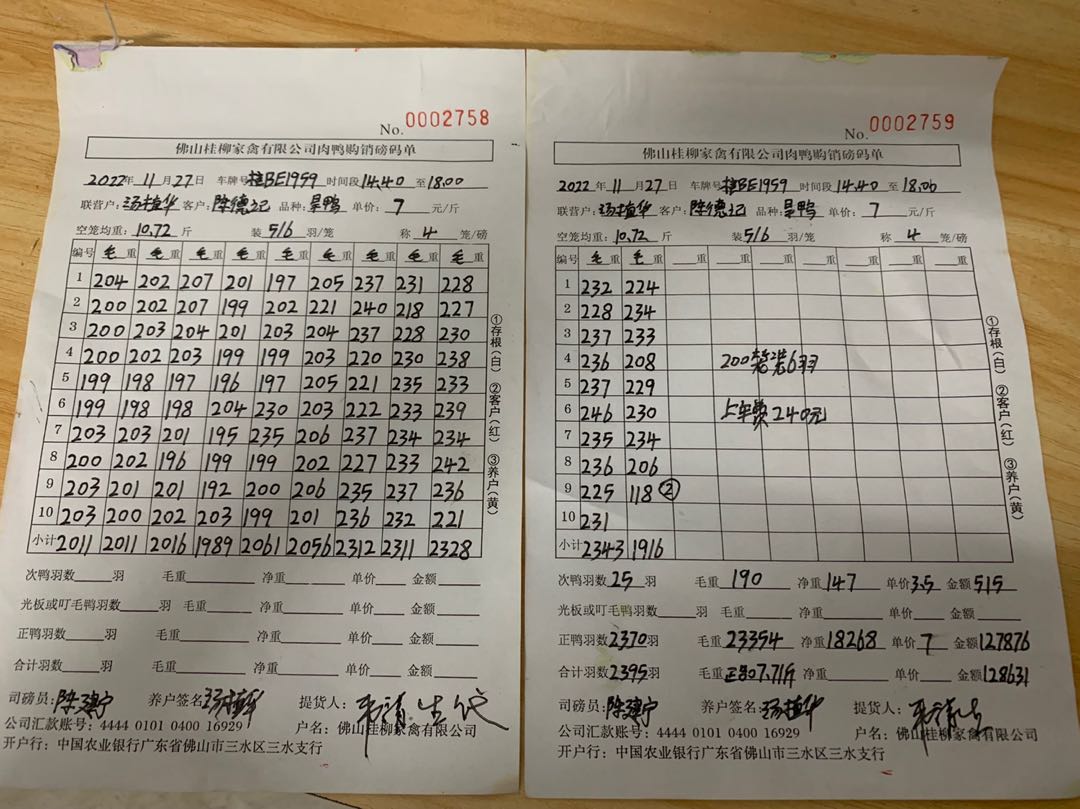 No. 0002758
佛山桂柳家禽有限公司肉鸭购销磅码单
2022年 11月27日 车牌号桂BE1959 时间段14.40 至18.00
联营户:汤植华 客户:陈德记 品种:旱鸭 单价:7 元/斤
空笼均重:10.72 斤 装5/6 羽/笼 称4 笼/磅
编号 毛重 毛重 毛重 毛重 毛重 毛重 毛重 毛重 毛重
1 204 202 207 201 197 205 237 231 228
2 200 202 207 199 202 221 240 218 227
3 200 203 204 201 203 204 237 228 230
4 200 202 203 199 199 203 220 230 238
5 199 198 197 196 197 205 221 235 233
6 199 198 198 204 230 203 222 233 239
7 203 203 201 195 235 206 237 234 234
8 200 202 196 199 199 202 227 233 242
9 203 201 201 192 200 206 235 237 236
10 203 200 202 203 199 201 236 232 221
小计 2011 2011 2016 1989 2061 2056 2312 2311 2328
次鸭羽数 羽 毛重 净重 单价 金额
光板或叮毛鸭羽数 羽 毛重 净重 单价 金额
正鸭羽数 羽 毛重 净重 单价 金额
合计羽数 羽 毛重 净重 单价 金额
司磅员:陈建宁 养户签名:汤植华 提货人:
公司汇款账号:4444 0101 0400 16929 户名:佛山桂柳家禽有限公司
开户行:中国农业银行广东省佛山市三水区三水支行
①存根(白) ②客户(红) ③养户(黄)
No. 0002759
佛山桂柳家禽有限公司肉鸭购销磅码单
2022年 11月27日 车牌号桂BE1959 时间段14.40 至18.00
联营户:汤植华 客户:陈德记 品种:旱鸭 单价:7 元/斤
空笼均重:10.72 斤 装5/6 羽/笼 称4 笼/磅
编号 毛重 毛重 重 重 重 重 重 重 重
1 232 224
2 228 234
3 237 233
4 236 208 200笼装6羽
5 237 229
6 246 230 上车费240元
7 235 234
8 236 206
9 225 118②
10 231
小计 2343 1916
次鸭羽数25羽 毛重190 净重147 单价3.5 金额515
光板或叮毛鸭羽数 羽 毛重 净重 单价 金额
正鸭羽数2370羽 毛重23354 净重18268 单价7 金额127876
合计羽数2395羽 毛重正均7.71斤 净重 单价 金额128631
司磅员:陈建宁 养户签名:汤植华 提货人:
公司汇款账号:4444 0101 0400 16929 户名:佛山桂柳家禽有限公司
开户行:中国农业银行广东省佛山市三水区三水支行
①存根(白) ②客户(红) ③养户(黄)